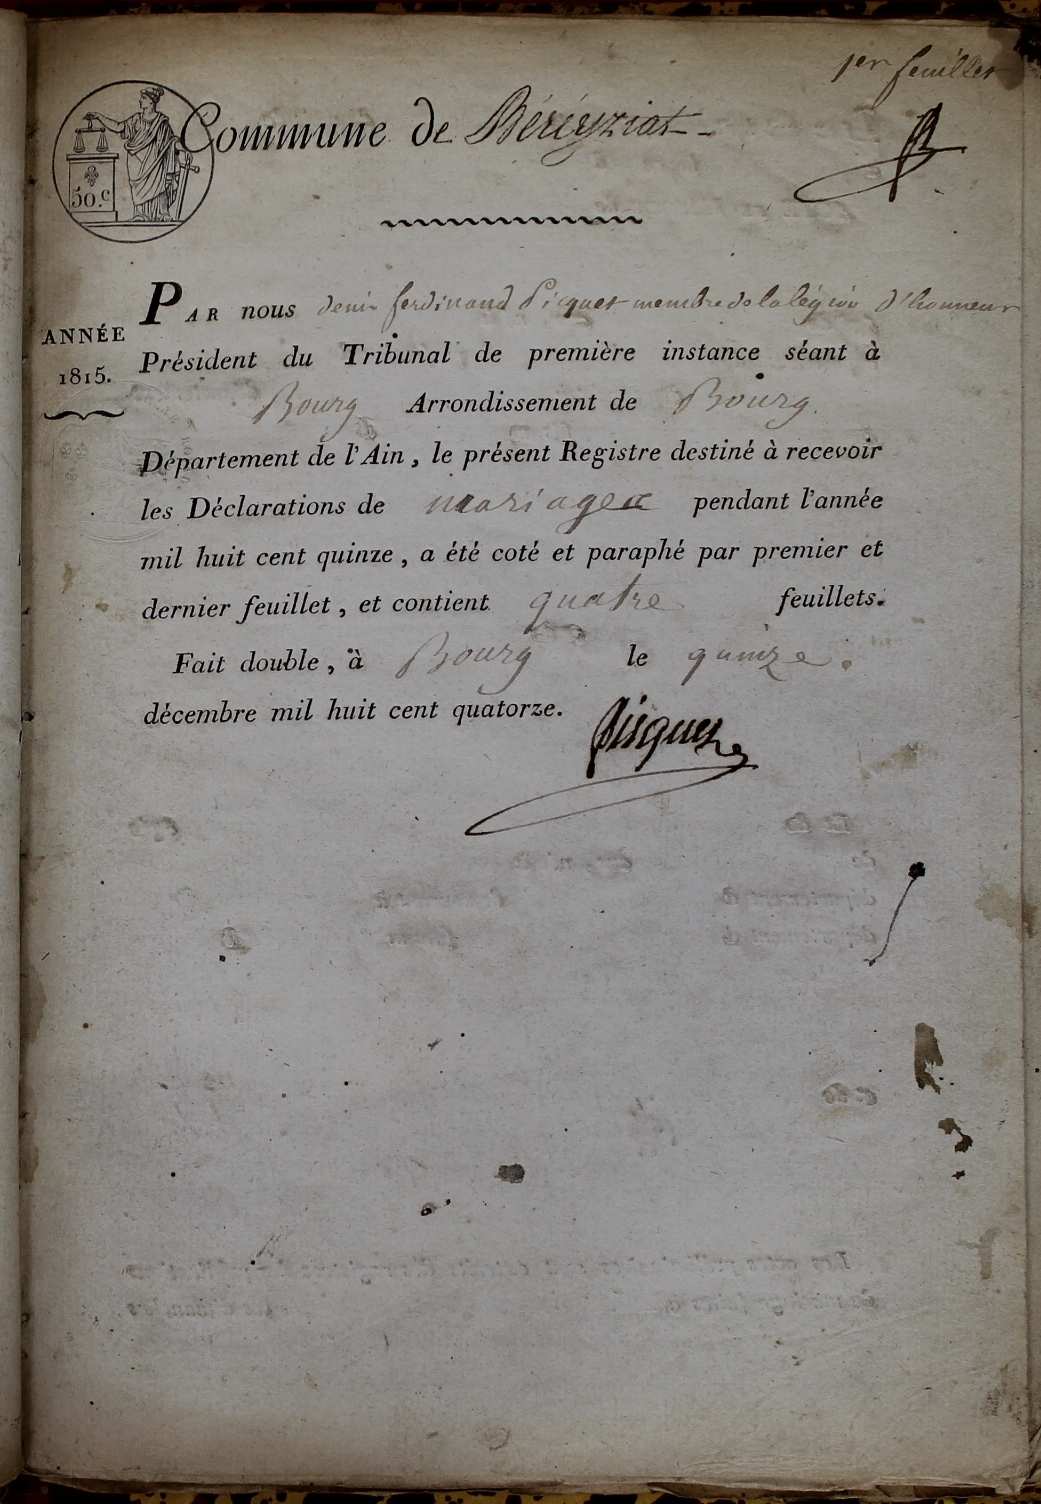 1er feuillet
Commune de Béréyziat
50.c
ANNÉE
1815.
PAR nous denis ferdinand Picquet membre de la légion d'honneur
Président du Tribunal de première instance séant à
Bourg Arrondissement de Bourg
Département de l'Ain, le présent Registre destiné à recevoir
les Déclarations de mariages pendant l'année
mil huit cent quinze, a été coté et paraphé par premier et
dernier feuillet, et contient quatre feuillets.
Fait double, à Bourg le quinze
décembre mil huit cent quatorze.
Picquet